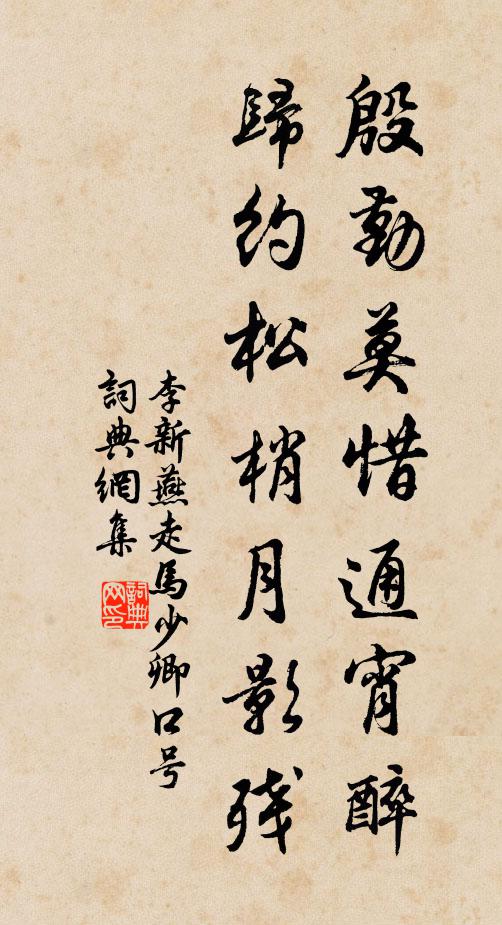 殷勤莫惜通宵醉
歸約松梢月影残
李新燕走馬少卿口号
詞典網集
詞典网印